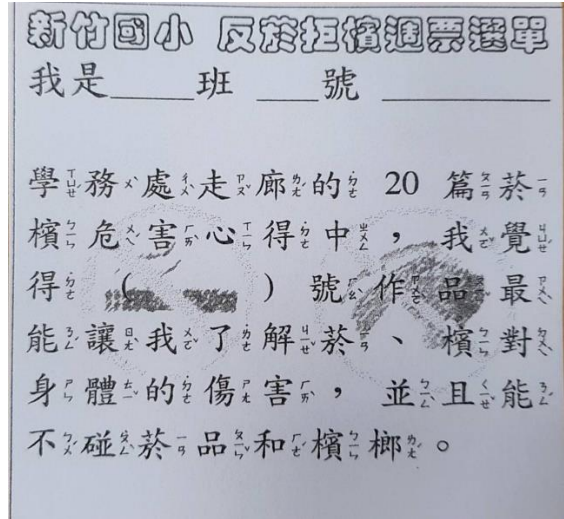 新竹國小 反菸拒檳週票選單
我是____班 ___號 __________
學務處走廊的 20 篇菸
檳危害心得中，我覺
得（ ）號作品最
能讓我了解菸、檳對
身體的傷害，並且能
不碰菸品和檳榔。